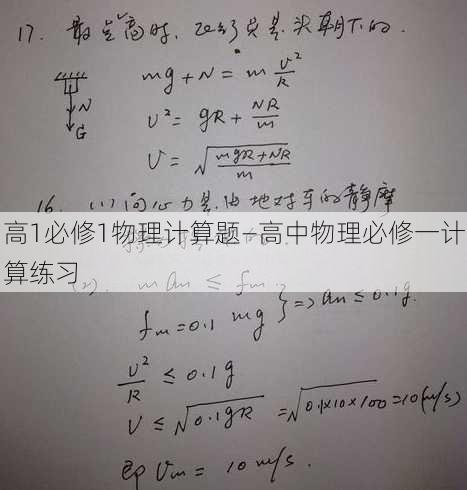 17. 最高时, 头朝下的.
mg+N = m v²/R
v² = gR + NR/m
v = √((mgR+NR)/m)
N
G
16. (1) 向心力是由地对车的静摩
高1必修1物理计算题—高中物理必修一计
算练习
(2). man ≤ fm
fm = 0.1 mg } => an ≤ 0.1g.
v²/R ≤ 0.1g
v ≤ √(0.1gR) = √(0.1×10×100) = 10(m/s)
即 Vm = 10 m/s.